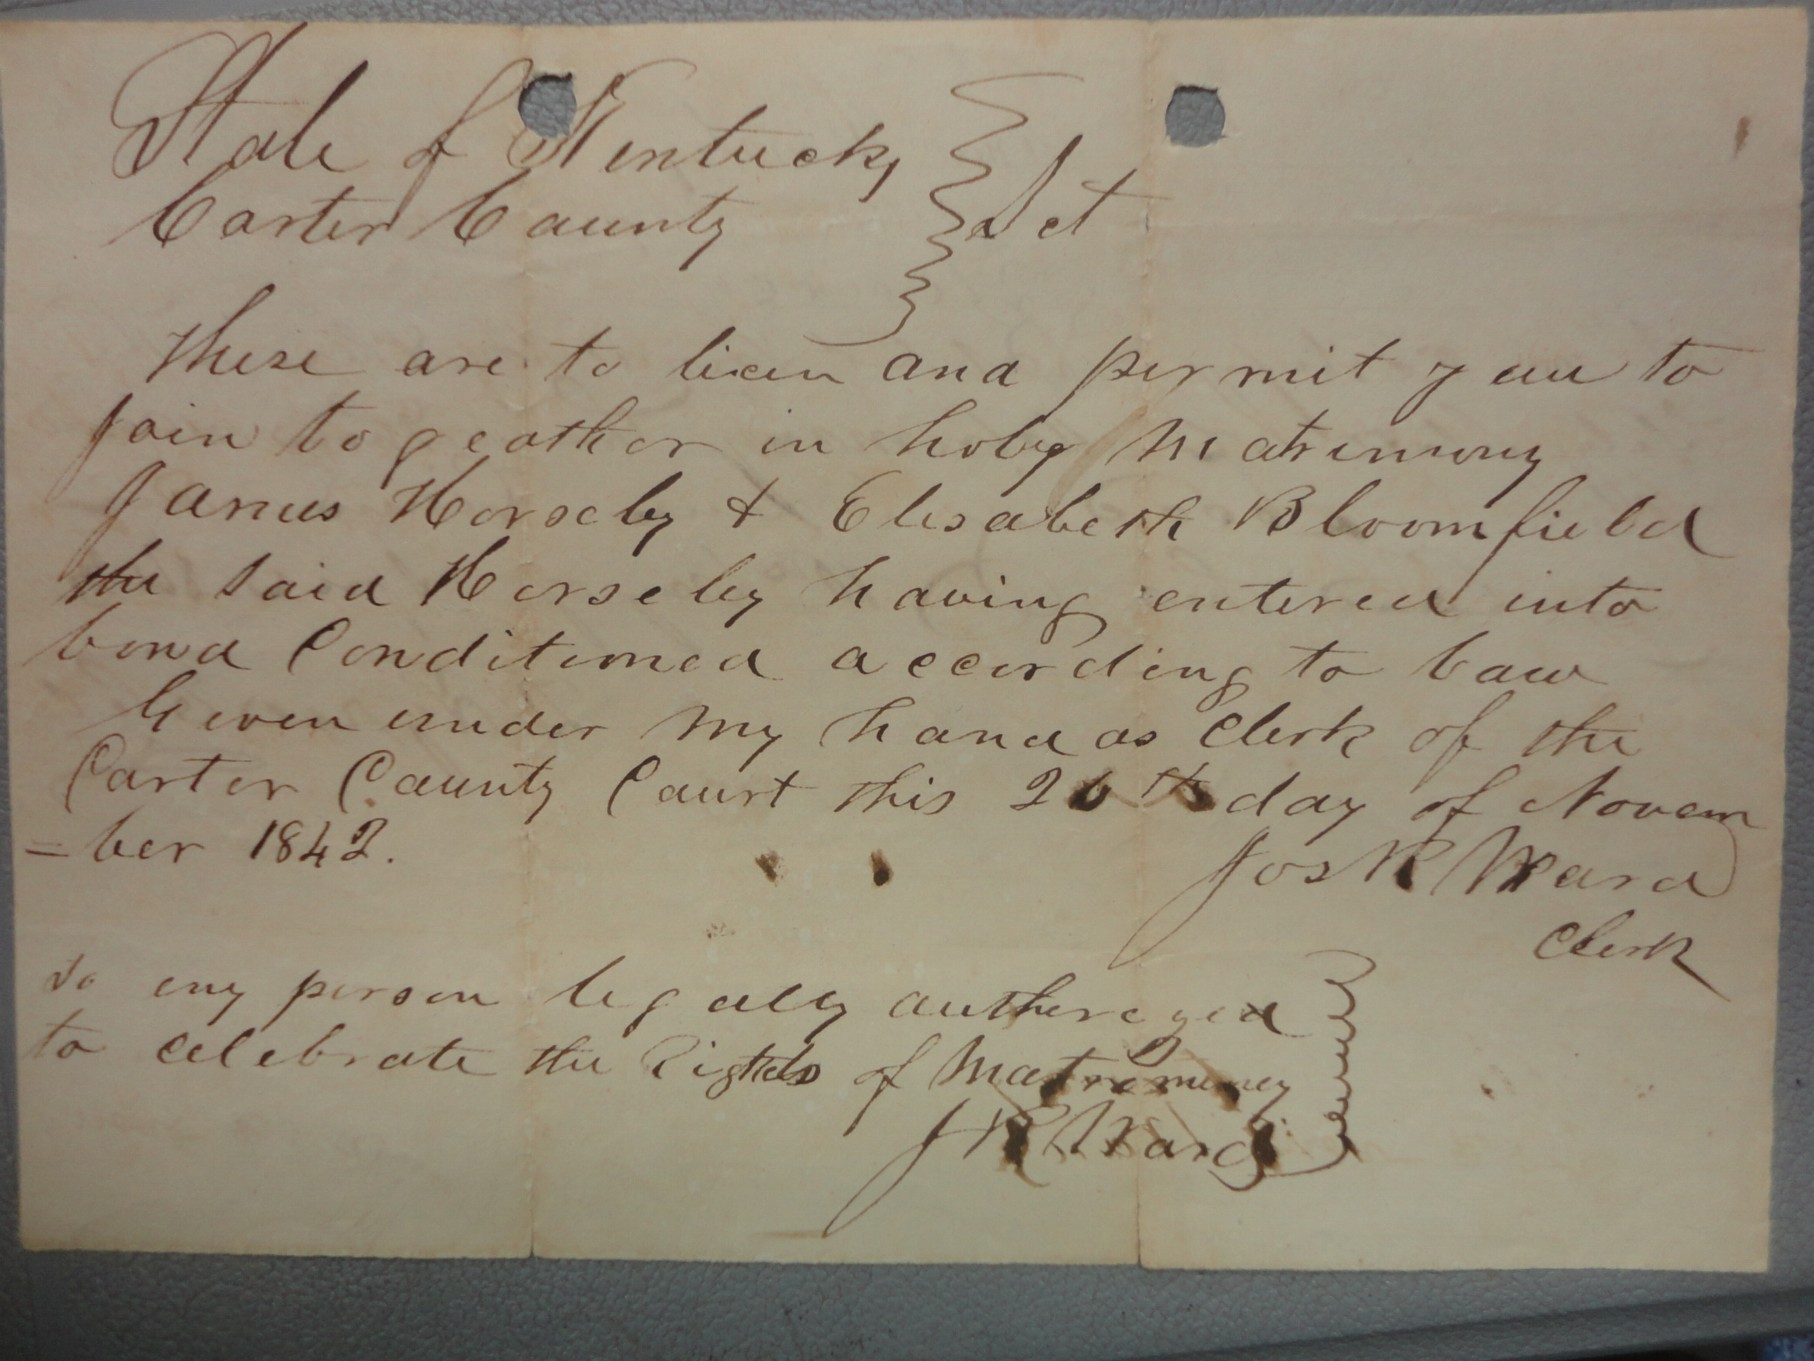 State of Kentucky
Carter County Sct
These are to licen and permit you to
join to geather in holy Matrimony
James Horseley & Elisabeth Bloomfield
the said Horseley having entered into
bond Conditioned according to law
Given under my hand as Clerk of the
Carter County Court this 26th day of Novem
=ber 1842.
Jos R Ward
Clerk
to eny person legally autherezed
to celebrate the Rights of Matrimoney
J R Ward